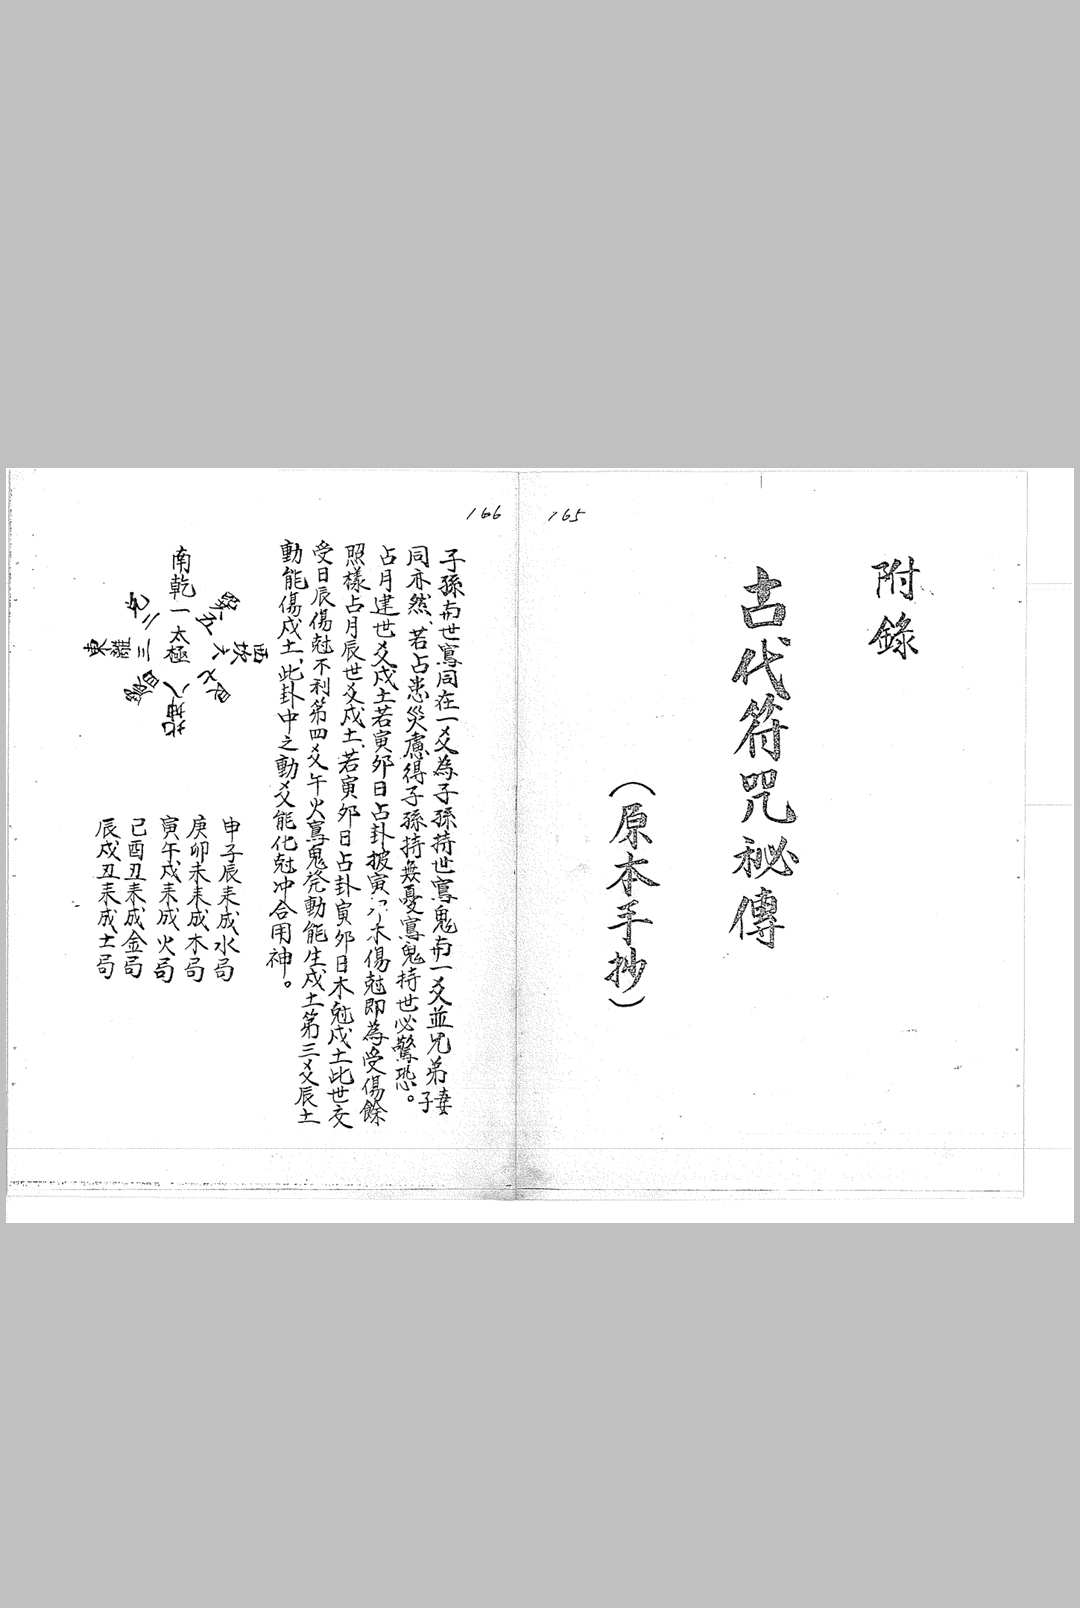 165
附錄
古代符咒秘傳
(原本手抄)
166
子孫与世寫同在一爻為子孫持世寫鬼与一爻並兄弟妻子
同亦然、若占患災慮得子孫持無憂寫鬼持世必驚恐。
占月建世爻戍土若寅夘日占卦披寅木傷尅即為受傷餘
照樣占月辰世爻戍土、若寅夘日占卦寅夘日木尅戍土此世爻
受日辰傷尅不利第四爻午火寫鬼発動能生戍土第三爻辰土
動能傷戍土、此卦中之動爻能化尅冲合用神。
南乾一
兌二
東離三
震四
太極
巽五
西坎六
艮七
北坤八
申子辰耒成水局
庚卯未耒成木局
寅午戍耒成火局
己酉丑耒成金局
辰戍丑耒成土局